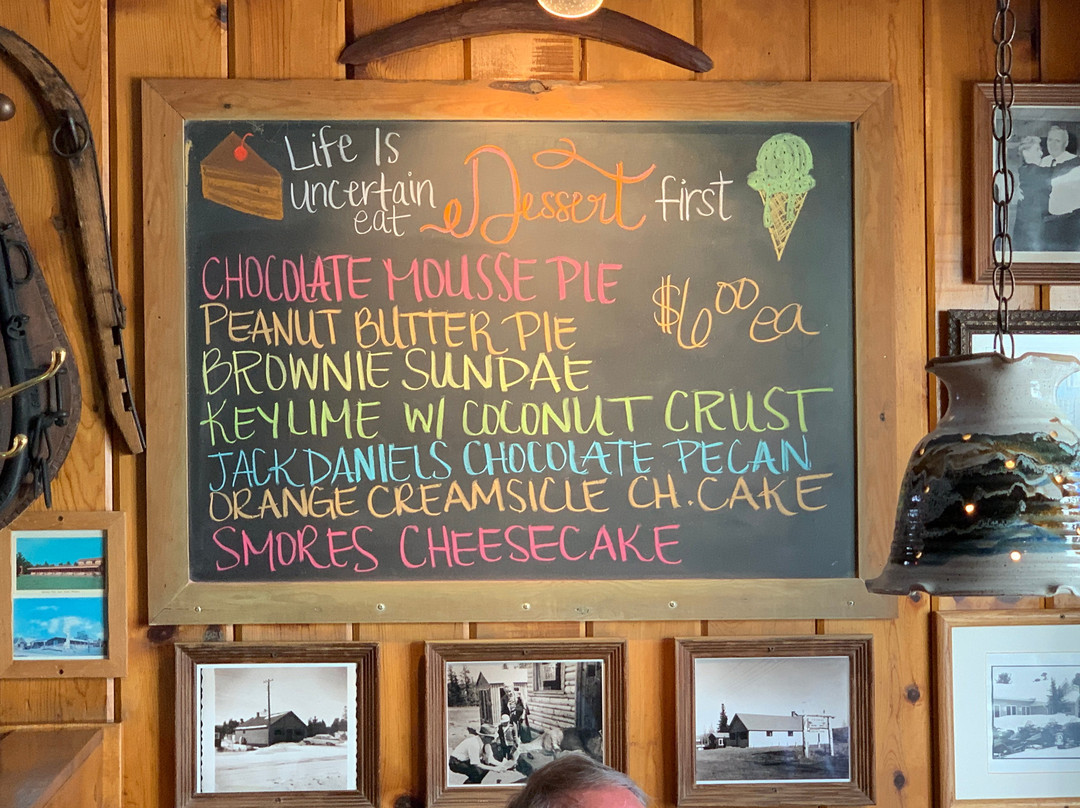 Life Is
uncertain
eat Dessert first
CHOCOLATE MOUSSE PIE
$6.00 ea
PEANUT BUTTER PIE
BROWNIE SUNDAE
KEYLIME W/ COCONUT CRUST
JACK DANIELS CHOCOLATE PECAN
ORANGE CREAMSICLE CH. CAKE
SMORES CHEESECAKE